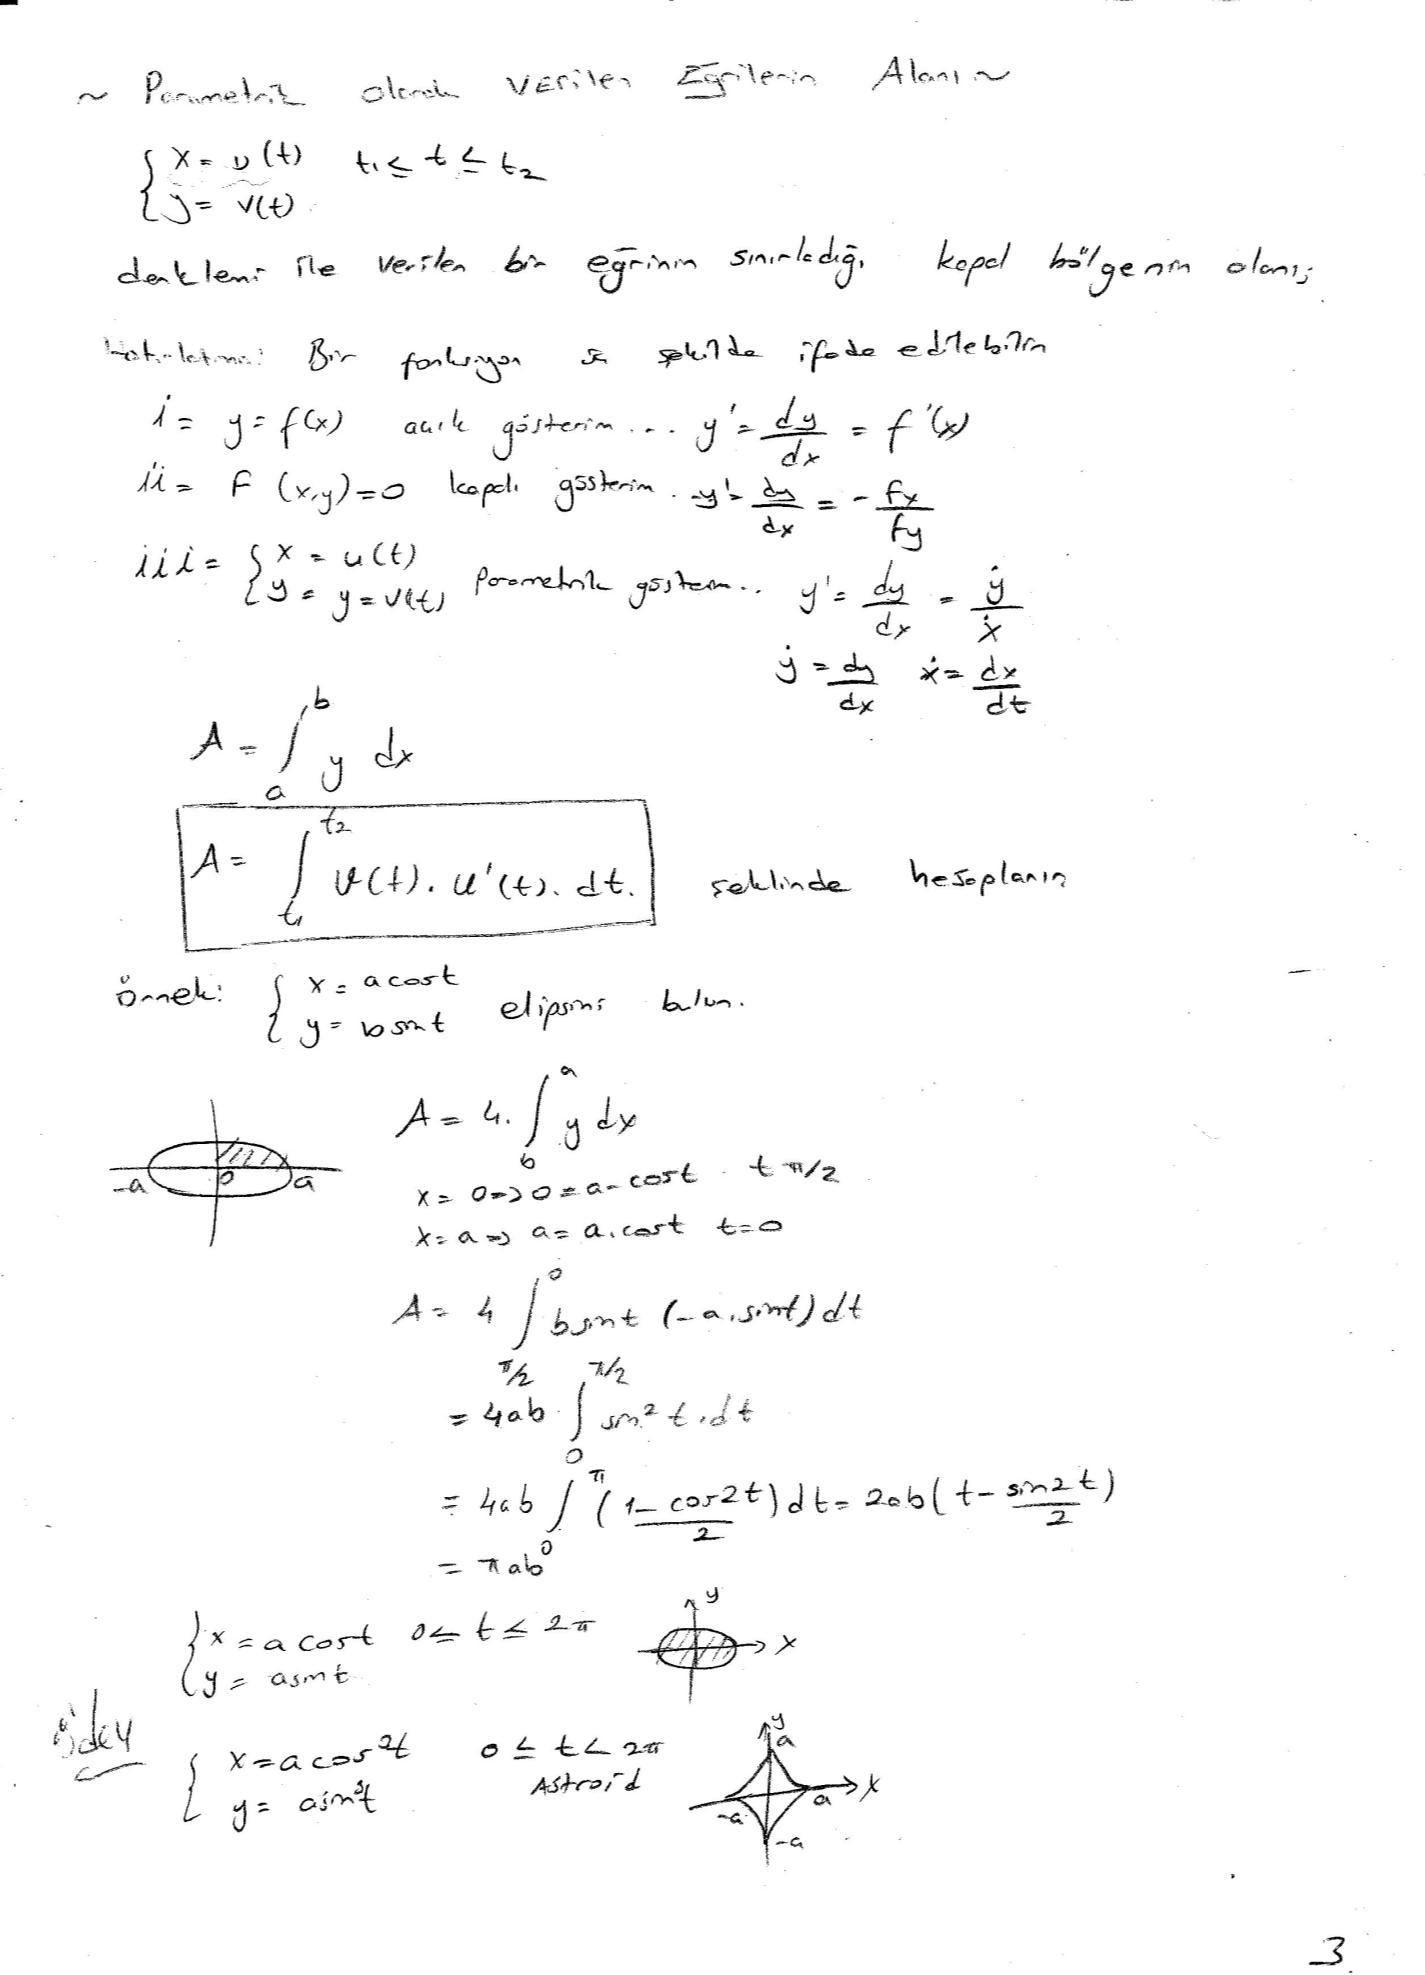 ~ Parametrik olarak verilen Eğrilerin Alanı ~
{ x = u(t) t₁ ≤ t ≤ t₂
y = v(t)
denklemi ile verilen bir eğrinin sınırladığı kapalı bölgenin alanı;
Hatırlatma: Bir fonksiyon şekilde ifade edilebilir
i = y = f(x) açık gösterim ... y' = dy/dx = f'(x)
ii = F (x,y) = 0 kapalı gösterim . y' = dy/dx = - fx/fy
iii = { x = u(t)
y = y = v(t) parametrik gösterim .. y' = dy/dx = ẏ/ẋ
ẏ = dy/dx ẋ = dx/dt
A = ∫ₐᵇ y dx
A = ∫ₜ₁ᵗ² v(t). u'(t). dt. şeklinde hesaplanır
örnek: { x = a cost
y = b sint elipsini bulun.
-a 0 a
A = 4. ∫ y dx
x = 0 => 0 = a cost t π/2
x = a => a = a.cost t = 0
A = 4 ∫ b sint (-a.sint) dt
π/2 0
= 4ab ∫ sin² t.dt
0 π/2
= 4ab ∫ (1 - cos2t)/2 dt = 2ab (t - sin2t/2)
0 π
= πab
{ x = a cost 0 ≤ t ≤ 2π y x
y = a sint
ödev
{ x = a cos³t 0 ≤ t < 2π y a
y = a sin³t Astroid -a a x
-a
3